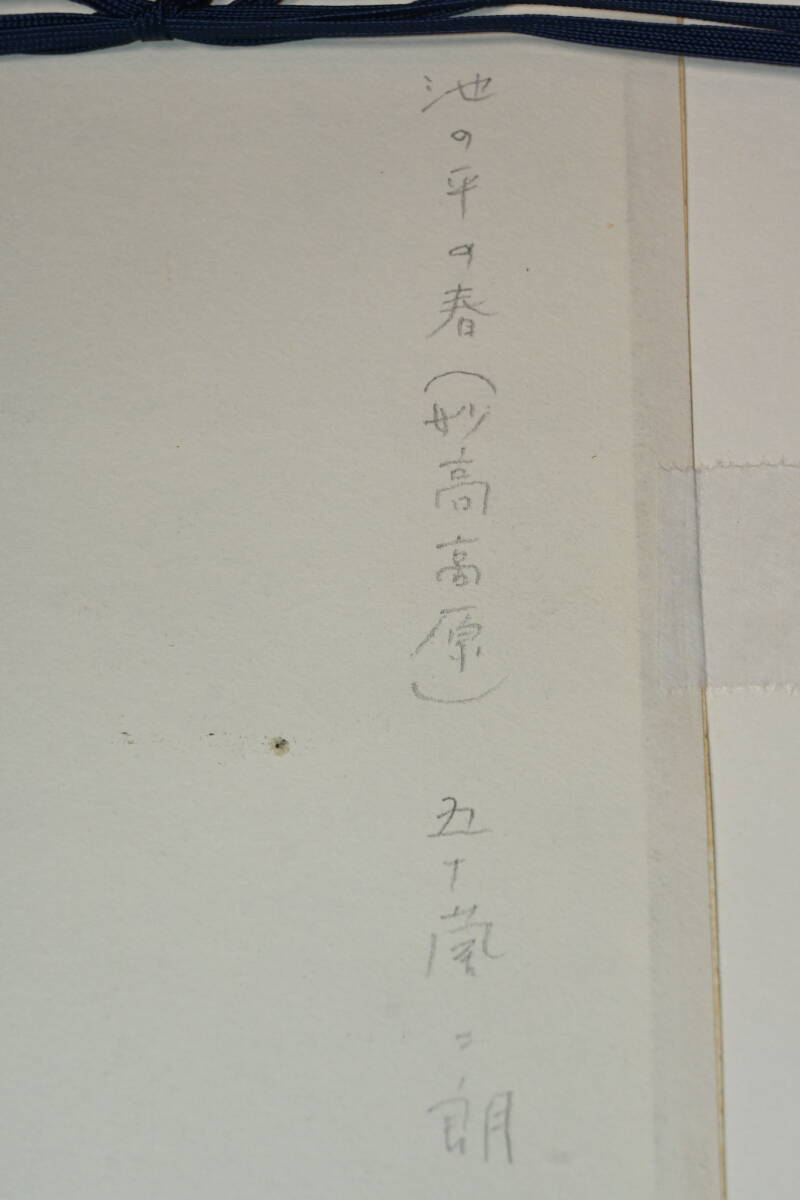 池の平の春（妙高高原）　五十嵐二朗